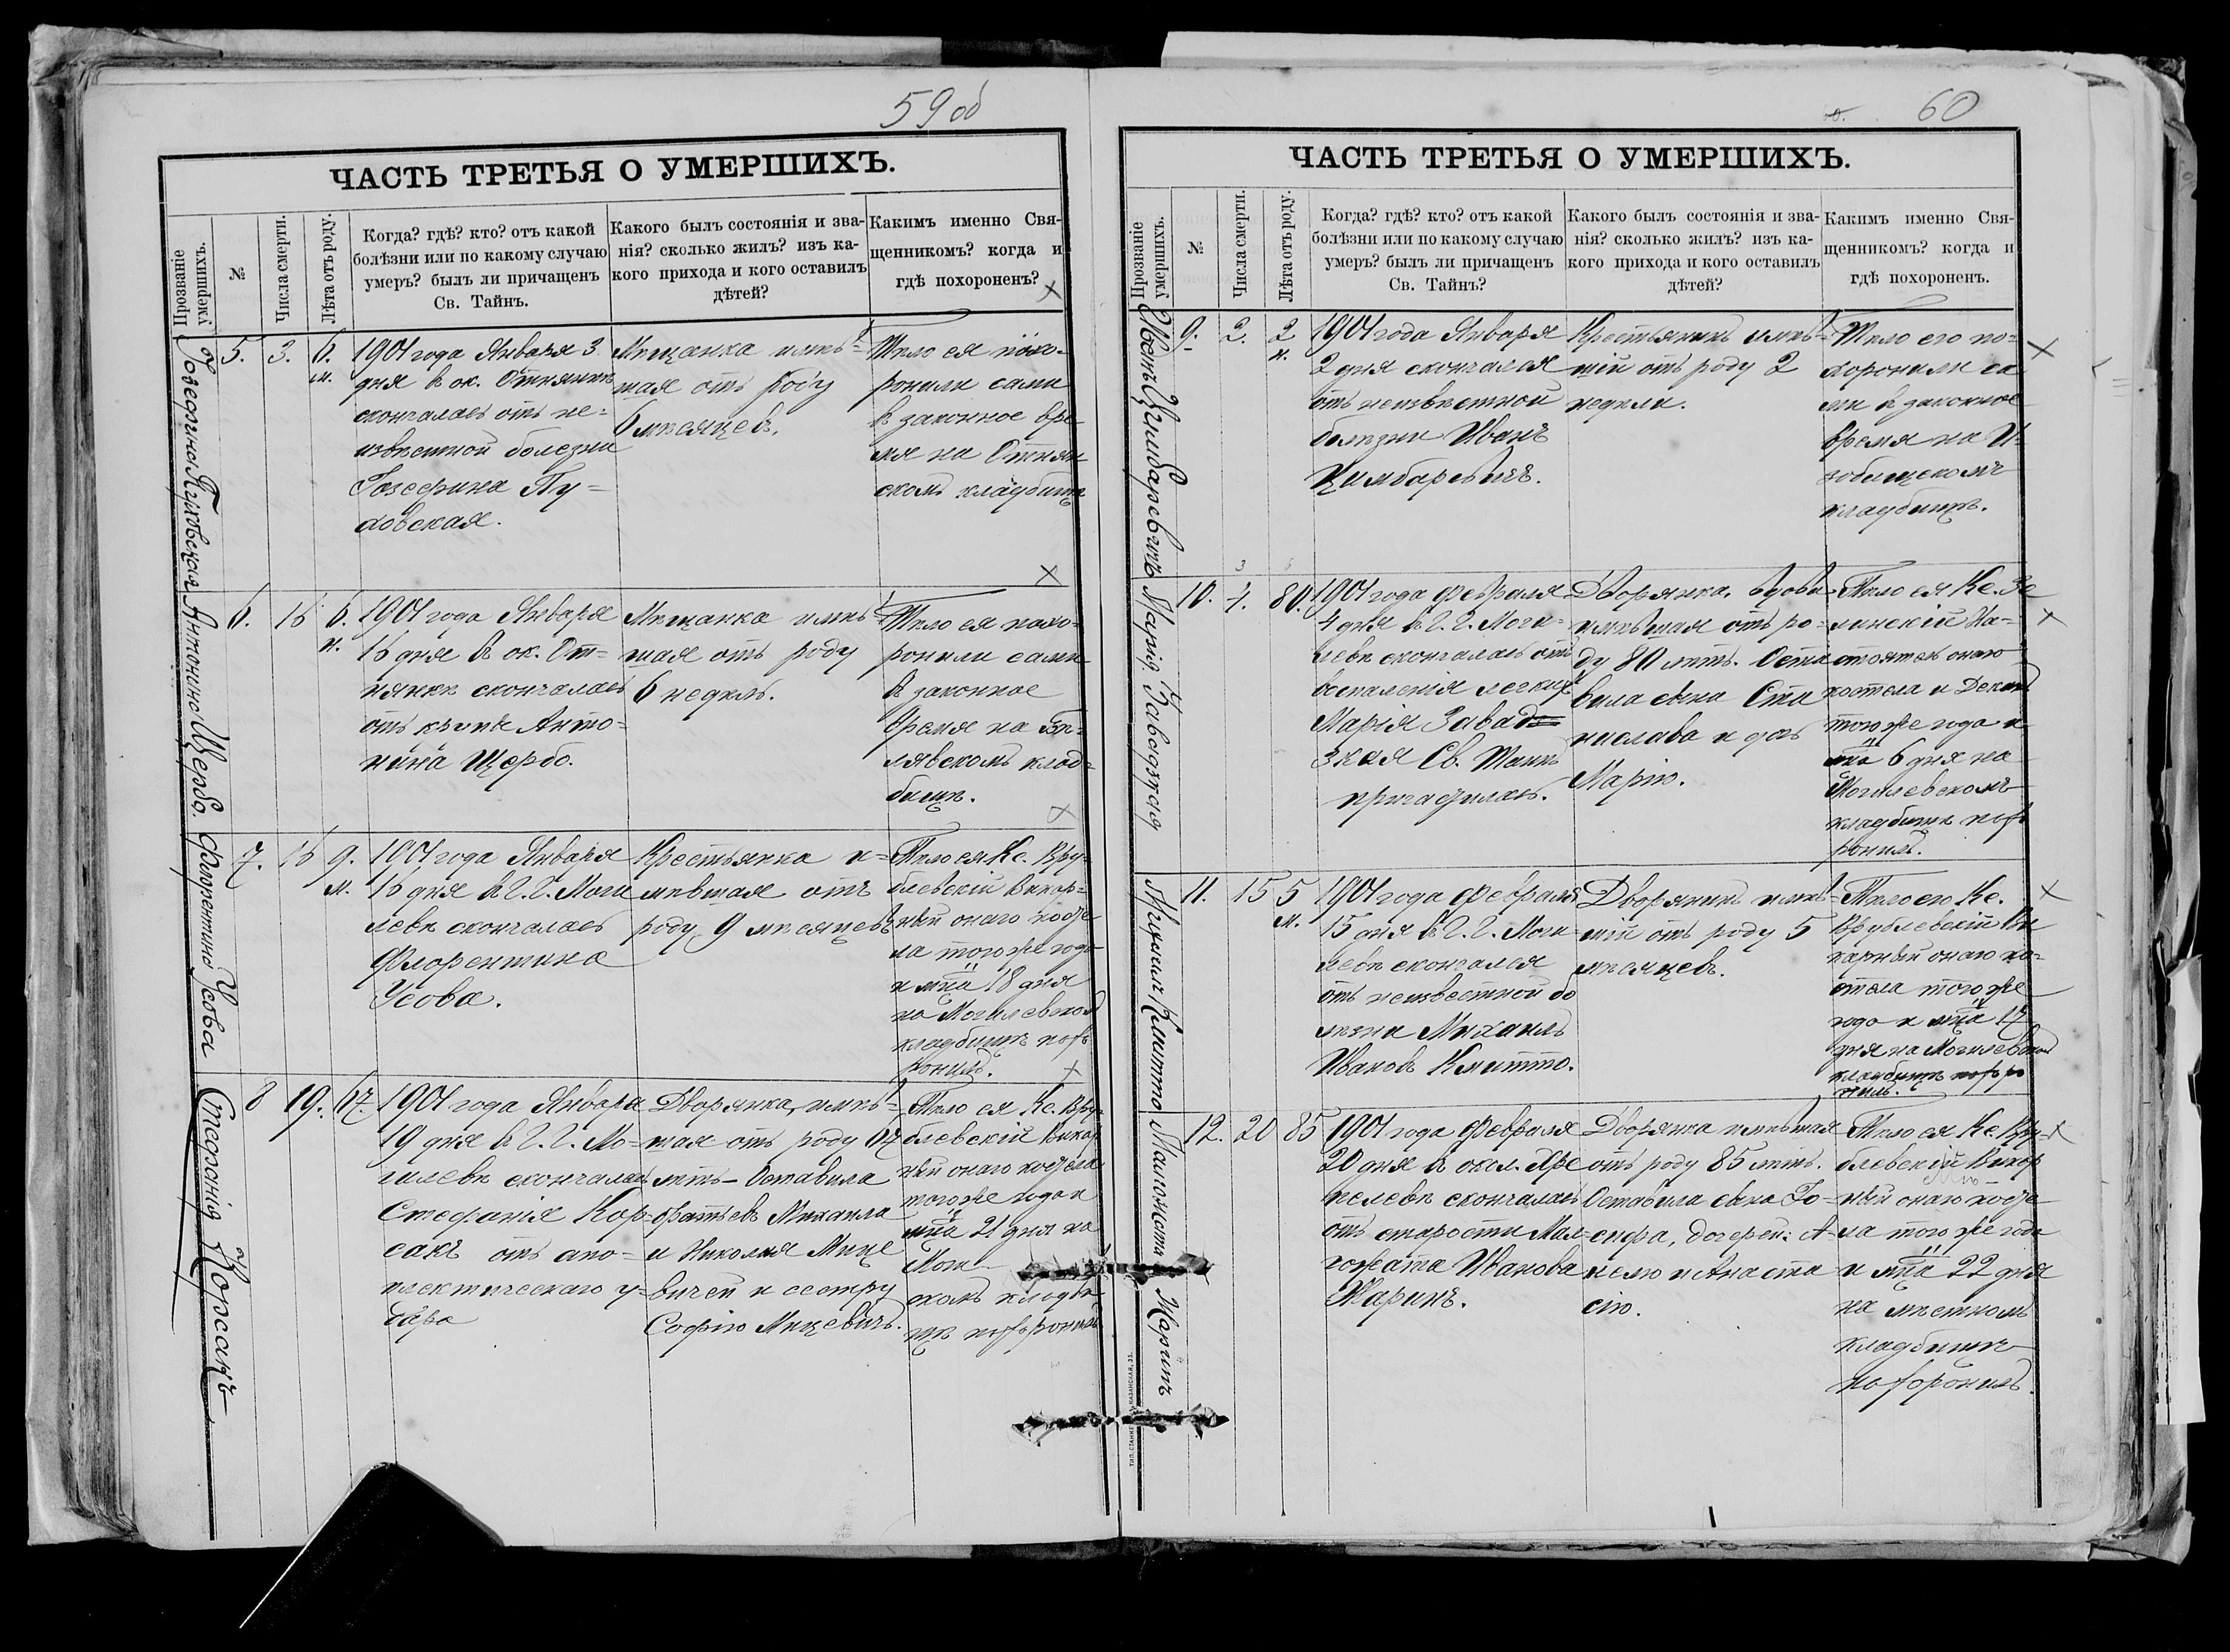 59 об
ЧАСТЬ ТРЕТЬЯ О УМЕРШИХЪ.
Прозваніе умершихъ.
№
Числа смерти.
Лѣта отъ роду.
Когда? гдѣ? кто? отъ какой
болѣзни или по какому случаю
умеръ? былъ ли причащенъ
Св. Тайнъ.
Какого былъ состоянія и зва-
нія? сколько жилъ? изъ ка-
кого прихода и кого оставилъ
дѣтей?
Какимъ именно Свя-
щенникомъ? когда и
гдѣ похороненъ?
Іозефина Пуховская
5.
3.
6.
м.
1901 года Января 3
дня в ок.
скончалась отъ не-
извѣстной болезни
Іозефина Пу-
ховская.
Мещанка имѣв-
шая отъ роду
6 мѣсяцев.
Тѣло ея похо-
ронили сами
в законное вре
мя на
ском кладбищѣ
Антонина Щербо.
6.
16
6.
н.
1901 года Января
16 дня в ок. От-
нянкѣ скончалась
отъ крупа Анто-
нина Щербо.
Мещанка имѣв-
шая отъ роду
6 недѣль.
Тѣло ея похо-
ронили сами
в законное
время на
лявскомъ клад-
бищѣ.
Флорентина Усова
7.
16
9.
м.
1901 года Января
16 дня в Г. Г. Моги
левѣ скончалась
Флорентина
Усова.
Крестьянка и-
мѣвшая отъ
роду 9 мѣсяцевъ
Тѣло ея Кс. Вру-
блевскій Викар-
ный онаго косте
ла того же года
и мца 18 дня
на Могилевском
кладбищѣ похо
ронилъ.
Стефанія Корсакъ
8
19.
67.
1901 года Января
19 дня в Г. Г. Мо-
гилевѣ скончалась
Стефанія Кор-
сакъ отъ апо-
плектическаго у-
дара
Дворянка, имѣв-
шая отъ роду 67
лѣтъ - Оставила
братьевъ Михаила
и Николая Мице
вичей и сестру
Софію Мицевичъ.
Тѣло ея Кс. Вру-
блевскій Викар
ный онаго костела
того же года и
мца 21 дня на
Моги
скомъ кладби
щѣ похоронилъ
60
ЧАСТЬ ТРЕТЬЯ О УМЕРШИХЪ.
Прозваніе умершихъ.
№
Числа смерти.
Лѣта отъ роду.
Когда? гдѣ? кто? отъ какой
болѣзни или по какому случаю
умеръ? былъ ли причащенъ
Св. Тайнъ?
Какого былъ состоянія и зва-
нія? сколько жилъ? изъ ка-
кого прихода и кого оставилъ
дѣтей?
Какимъ именно Свя-
щенникомъ? когда и
гдѣ похороненъ.
Иванъ Цимбаревичъ
9.
2.
2
н.
1901 года Января
2 дня скончался
отъ неизвѣстной
болѣзни Иванъ
Цимбаревичъ.
Крестьянинъ имѣв-
шій отъ роду 2
недѣли.
Тѣло его по-
хоронили са
ми в законное
время на И-
зобищскомъ
кладбищѣ.
Марія Завадзкая
10.
4.
80.
1901 года Февраля
4 дня в Г. Г. Моги-
левѣ скончалась отъ
воспаленія легкихъ
Марія Завад-
зкая Св. Тайнъ
причастилась.
Дворянка, вдова
имѣвшая отъ ро-
ду 80 лѣтъ. Оста
вила сына Ста
нислава и дочь
Марію.
Тѣло ея Кс. Зе
линскій На-
стоятель онаго
костела и Деканъ
того же года и
мца 6 дня на
Могилевскомъ
кладбищѣ похо
ронилъ.
Михаилъ Кмитто
11.
15
5
м.
1901 года Февраля
15 дня в Г. Г. Моги-
левѣ скончался
отъ неизвестной бо
лѣзни Михаилъ
Ивановъ Кмитто.
Дворянинъ имѣв-
шій отъ роду 5
мѣсяцевъ.
Тѣло его Кс.
Врублевскій Ви
карный онаго ко-
стела того же
года и мца 17
дня на Могилевском
кладбищѣ похоро
нилъ.
Малгожата Жаринъ
12.
20
85
1901 года Февраля
20 дня в окол.
пелевѣ скончалась
отъ старости Мал-
гожата Иванова
Жаринъ.
Дворянка имѣвшая
отъ роду 85 лѣтъ.
Оставила сына Іо-
сифа, дочерей: А-
нелю и Анаста
сію.
Тѣло ея Кс. Вру-
блевскій Викар
ный онаго косте
ла того же года
и мца 22 дня
на мѣстномъ
кладбищѣ
похоронилъ.